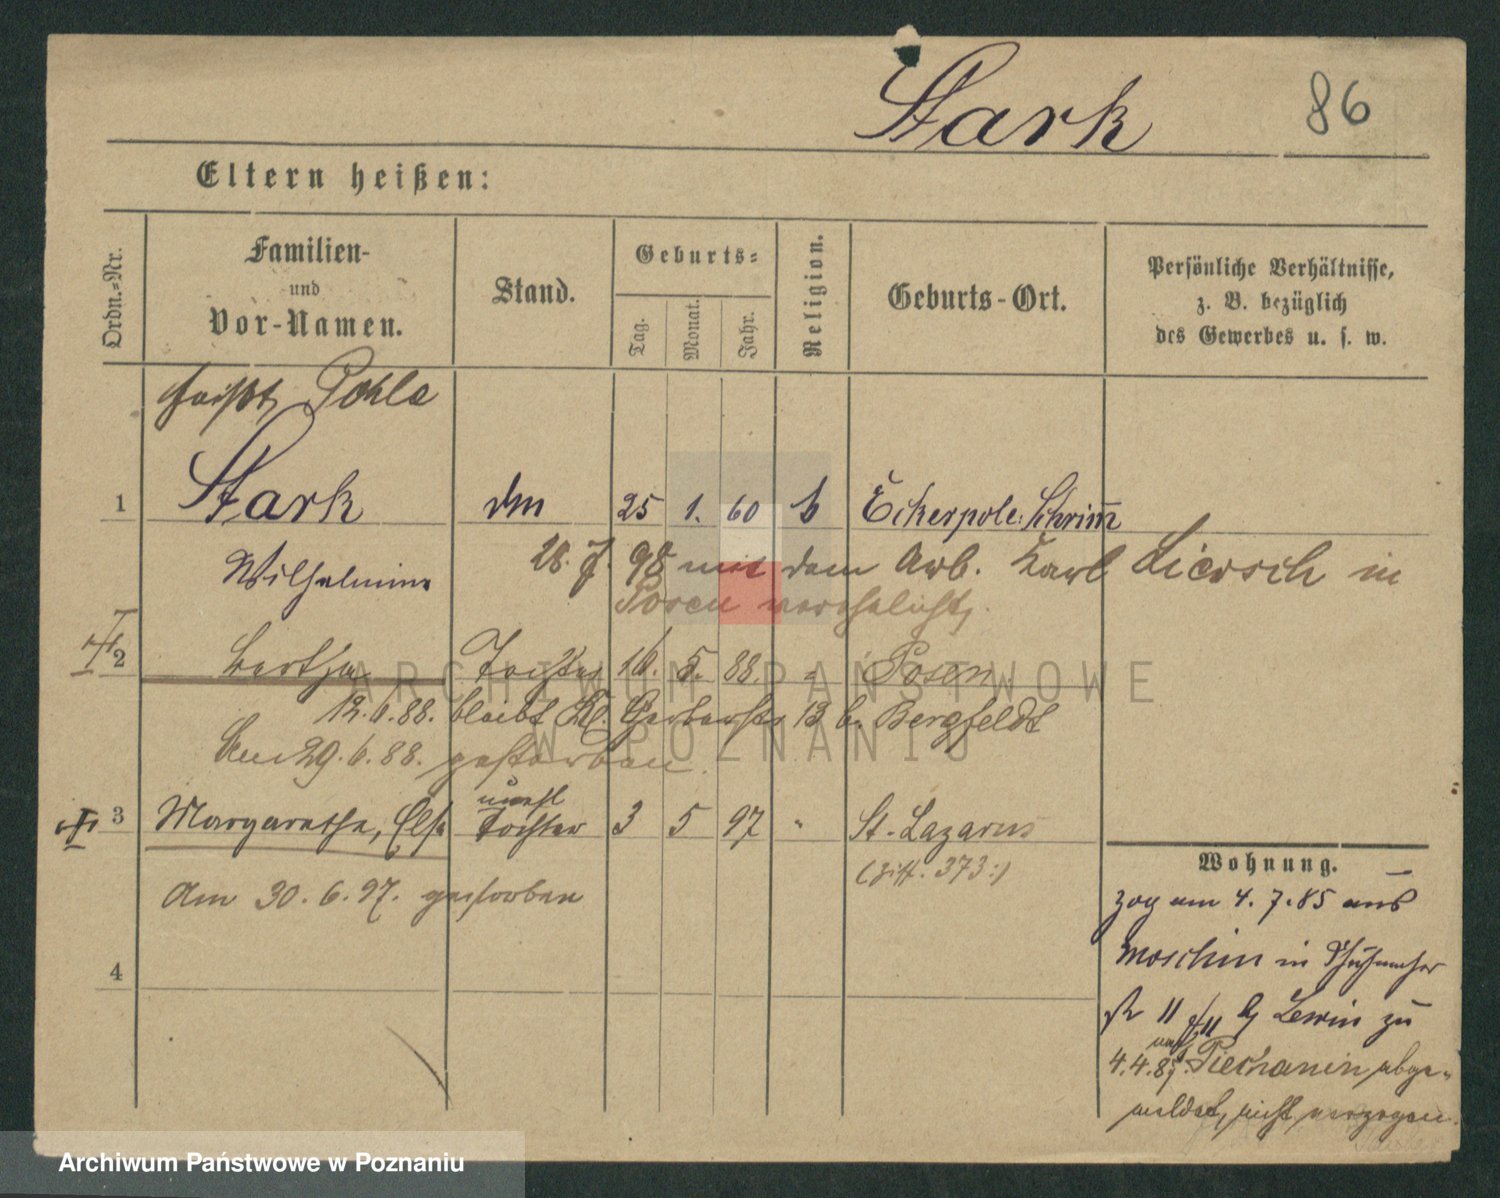 Stark
86
Eltern heißen:
Ordn.-Nr.
Familien-
und
Vor-Namen.
Stand.
Geburts-
Tag.
Monat.
Jahr.
Religion.
Geburts-Ort.
Persönliche Verhältnisse,
z. B. bezüglich
des Gewerbes u. s. w.
heißt Pohle
1 Stark 25 1. 60 Schrimm
Wilhelmine 28. 7. 98 mit dem Arb. Karl Liersch in
Posen verehelicht.
2 Bertha Tochter 16. 5. 88. " Posen
12.6.88. bleibt Kl. Gerberstr 13 b. Bergfeldt
Am 29.6.88. gestorben.
unehl
3 Margarethe, Else Tochter 3 5 97 " St. Lazarus
(Ziff. 373:)
Am 30. 6. 97. gestorben
4
Wohnung.
zog am 4. 7. 85 aus
Moschin in
11 b Lewin zu
nach
4.4.87. Piechanin abge-
meldet, nicht verzogen.
ARCHIWUM PAŃSTWOWE
W POZNANIU
Archiwum Państwowe w Poznaniu